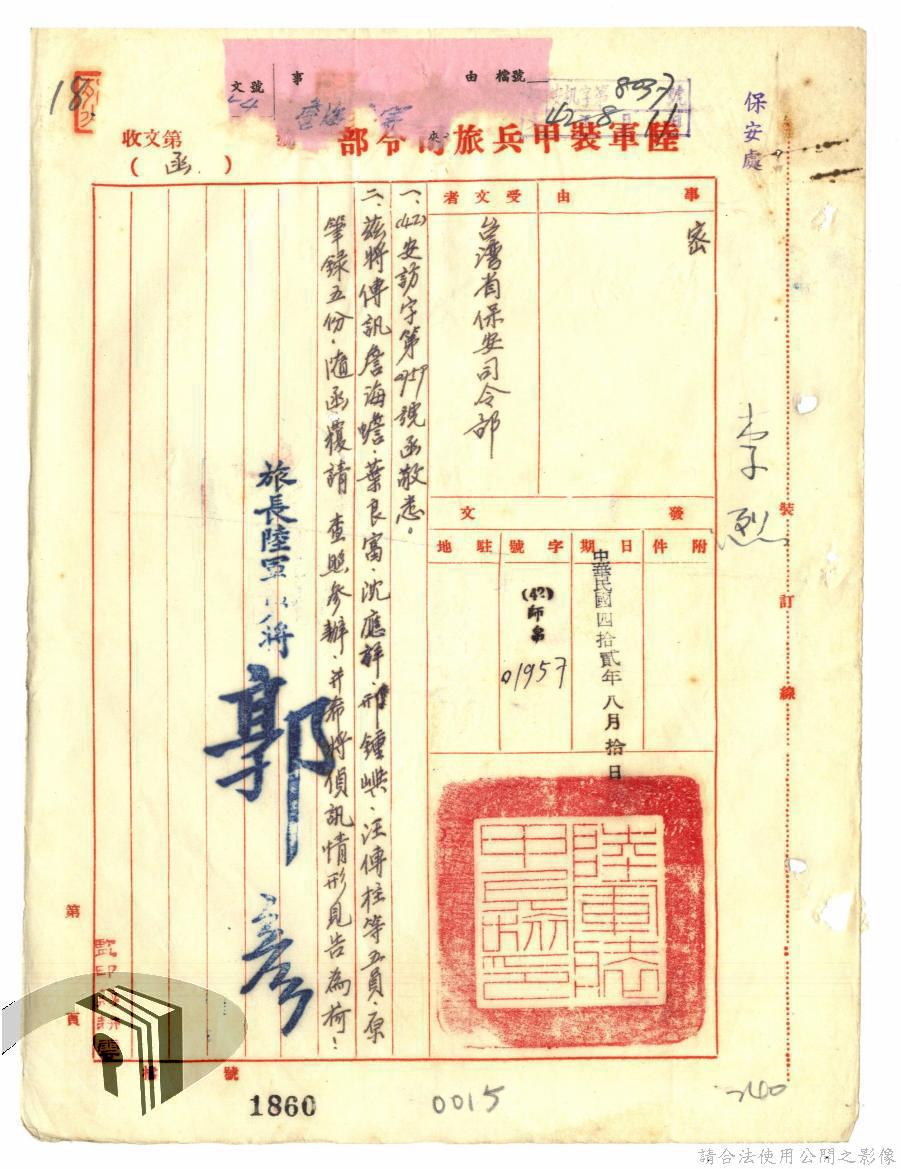 保安處
李烈
事由
檔號
文號
8037
42 8 11
18
陸軍裝甲兵旅司令部
(函)
收文第 號
事由
密
受文者
台灣省保安司令部
發文
附件
日期
中華民國四拾貳年八月拾日
字號
(42)師帛
01957
駐地
一、(42)安訪字第 號函敬悉。
二、茲將傳訊詹海蟾、葉良富、沈應詳、邢鍾嶼、汪傳柱等五員原
筆錄五份、隨函覆請 查照參辦、并希將偵訊情形見告為荷!
旅長陸軍少將
郭彥
監印
第 頁
檔號
裝訂線
1860
0015
請合法使用公開之影像